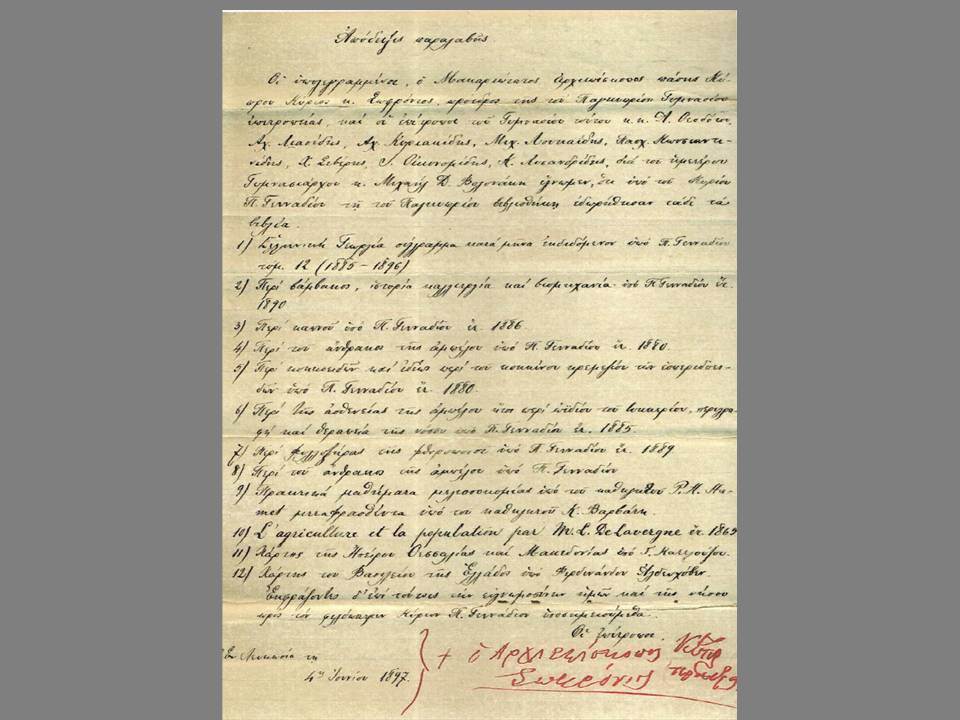 Ἀπόδειξις παραλαβῆς.
Οἱ ὑπογεγραμμένοι, ὁ Μακαριώτατος Ἀρχιεπίσκοπος πάσης Κύ-
πρου Κύριος κ. Σωφρόνιος, πρόεδρος τῆς τοῦ Παγκυπρίου Γυμνασίου
ἐπιτροπείας, καὶ οἱ ἐπίτροποι τοῦ Γυμνασίου τούτου κ.κ. Ἀ. Θεοδότου,
Ἀχ. Λιασίδης, Ἀχ. Κυριακίδης, Μιχ. Λουκαΐδης, Πασχ. Κωνσταντι-
νίδης, Χ. Σεβέρης, Οἰκονομίδης, διὰ τοῦ ἡμετέρου
Γυμνασιάρχου κ. Μιχαὴλ Δ. Βολονάκη ὅτι ὑπὸ τοῦ Κυρίου
Π. Γενναδίου τῇ τοῦ Παγκυπρίου βιβλιοθήκῃ ἐδωρήθησαν τάδε τὰ
βιβλία.
1) Ἑλληνικὴ Γεωργία σύγγραμμα κατὰ μῆνα ἐκδιδόμενον ὑπὸ Π. Γενναδίου
τομ. 12 (1885 – 1896)
2) Περὶ βάμβακος, ἱστορία καλλιεργία καὶ βιομηχανία ὑπὸ Π. Γενναδίου ἔτ.
1890
3) Περὶ καπνοῦ ὑπὸ Π. Γενναδίου ἔτ. 1886.
4) Περὶ τοῦ ἄνθρακος τῆς ἀμπέλου ὑπὸ Π. Γενναδίου ἔτ. 1880.
5) Περὶ κοκκοειδῶν καὶ ἰδίως περὶ τοῦ κοκκίνου τῶν ἑσπεριδοει-
δῶν ὑπὸ Π. Γενναδίου ἔτ. 1880.
6) Περὶ τῆς ἀσθενείας τῆς ἀμπέλου ἤτοι περὶ ὠϊδίου τοῦ περιγρα-
φὴ καὶ θεραπεία τῆς νόσου ὑπὸ Π. Γενναδίου ἔτ. 1885.
7) Περὶ φυλλοξήρας τῆς ὑπὸ Π. Γενναδίου ἔτ. 1889.
8) Περὶ τοῦ ἄνθρακος τῆς ἀμπέλου ὑπὸ Π. Γενναδίου
9) Πρακτικὰ μαθήματα μελισσοκομίας ὑπὸ τοῦ καθηγητοῦ Ρ. Η. Ha-
met μεταφρασθέντα ὑπὸ τοῦ καθηγητοῦ Κ. Βαρβάκη
10) L'agriculture et la population par M. L. De Lavergne ἔτ 1865
11) Χάρτης τῆς Ἠπείρου Θεσσαλίας καὶ Μακεδονίας ὑπὸ
12) Χάρτης τοῦ Βασιλείου τῆς Ἑλλάδος ὑπὸ Φερδινάνδου Ἀλδενχόβεν.
Ἐκφράζοντες δ' ἐπὶ τούτοις τὴν εὐγνωμοσύνην ἡμῶν καὶ τῆς νήσου
πρὸς τὸν φιλόπατριν Κύριον Π. Γεννάδιον ὑποσημειούμεθα.
Οἱ Ἐπίτροποι.
Ἐν Λευκωσίᾳ τῇ
4ῃ Ἰουνίου 1897.
+ ὁ Ἀρχιεπίσκοπος Κύπρ
Σωφρόνιος πρόεδρος